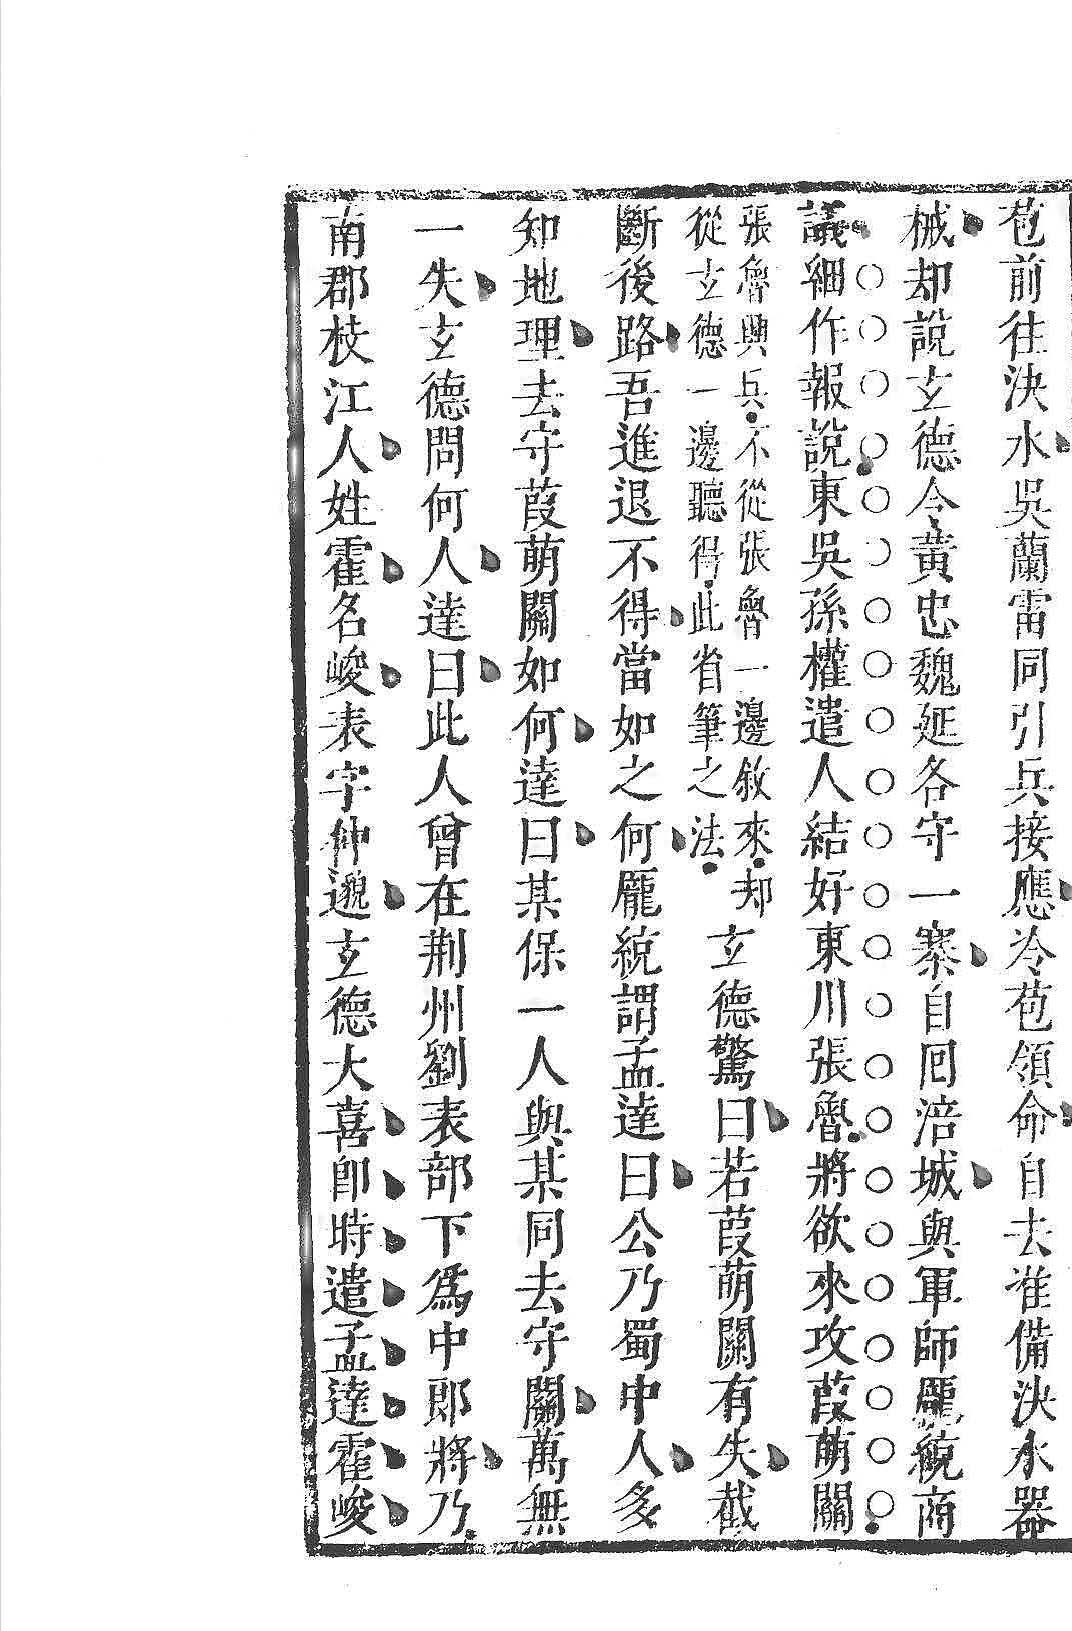 苞前往決水吳蘭雷同引兵接應冷苞領命自去准備決水器
械却說玄德令黃忠魏延各守一寨自回涪城與軍師龐統商
議細作報說東吳孫權遣人結好東川張魯將欲來攻葭萌關
張魯興兵不從張魯一邊敘來却
從玄德一邊聽得此省筆之法
玄德驚曰若葭萌關有失截
斷後路吾進退不得當如之何龐統謂孟達曰公乃蜀中人多
知地理去守葭萌關如何達曰某保一人與某同去守關萬無
一失玄德問何人達曰此人曾在荆州劉表部下爲中郎將乃
南郡枝江人姓霍名峻表字仲邈玄德大喜卽時遣孟達霍峻